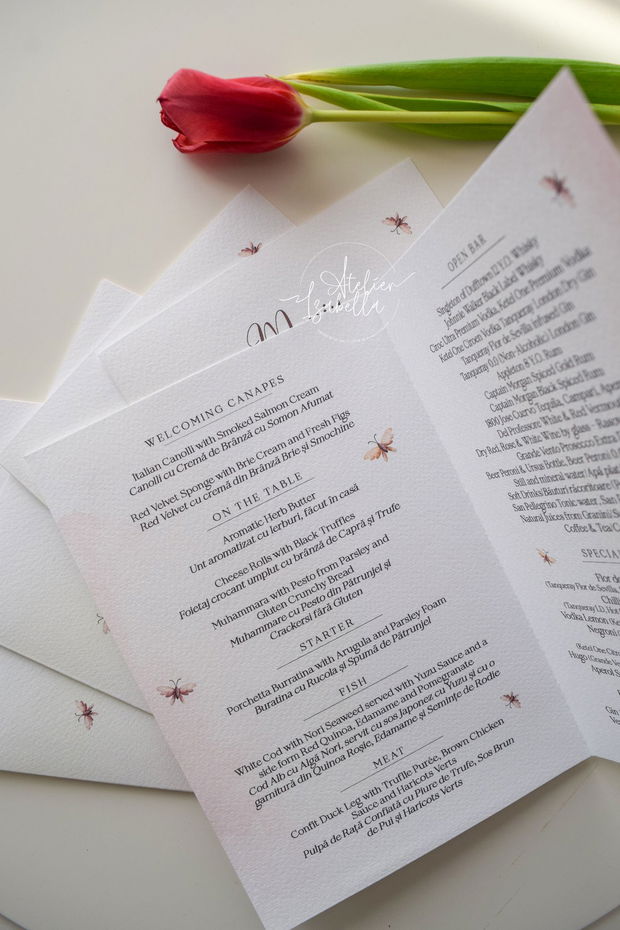 Atelier
Isabella
M
WELCOMING CANAPES
Italian Canolli with Smoked Salmon Cream
Canolli cu Cremă de Brânză cu Somon Afumat
Red Velvet Sponge with Brie Cream and Fresh Figs
Red Velvet cu cremă din Brânză Brie și Smochine
ON THE TABLE
Aromatic Herb Butter
Unt aromatizat cu Ierburi, făcut în casă
Cheese Rolls with Black Truffles
Foletaj crocant umplut cu brânză de Capră și Trufe
Muhammara with Pesto from Parsley and
Gluten Crunchy Bread
Muhammare cu Pesto din Pătrunjel și
Crackerși fără Gluten
STARTER
Porchetta Burratina with Arugula and Parsley Foam
Buratina cu Rucola și Spumă de Pătrunjel
FISH
White Cod with Nori Seaweed served with Yuzu Sauce and a
side form Red Quinoa, Edamame and Pomegranate
Cod Alb cu Algă Nori, servit cu sos Japonez cu Yuzu și cu o
garnitură din Quinoa Roșie, Edamame și Semințe de Rodie
MEAT
Confit Duck Leg with Trufle Purée, Brown Chicken
Sauce and Haricots Verts
Pulpă de Rață Confiată cu Piure de Trufe, Sos Brun
de Pui și Haricots Verts
OPEN BAR
Singleton of Dufftown 12 Y.O. Whisky
Johnnie Walker Black Label Whisky
Ciroc Ultra Premium Vodka, Ketel One Premium Vodka
Ketel One Citroen Vodka Tanqueray London Dry Gin
Tanqueray Flor de Sevilla infused Gin
Tanqueray 0.0 (Non-Alcoholic) London Gin
Appleton 8 Y.O. Rum
Captain Morgan Spiced Gold Rum
Captain Morgan Black Spiced Rum
1800 Jose Cuervo Tequila, Campari, Apero
Del Professore White & Red Vermou
Dry Red, Rose & White Wine by glass - Rason
Grande Vento Prosecco Extra
Beer Peroni & Ursus Bottle, Beer Peroni 0.0
Still and mineral water/ Apă plat
Soft Drinks/Băuturi răcoritoare (
San Pellegrino Tonic water, San
Natural Juices from Granini/ S
Coffee & Tea/ C
SPECIA
Flor de
(Tanqueray Flor de Sevilla,
Chill
(Tanqueray LD, Hot
Vodka Lemon (Ke
Negroni
(Ketel One Citroe
Hugo (Grande Ve
Aperol S
Gin